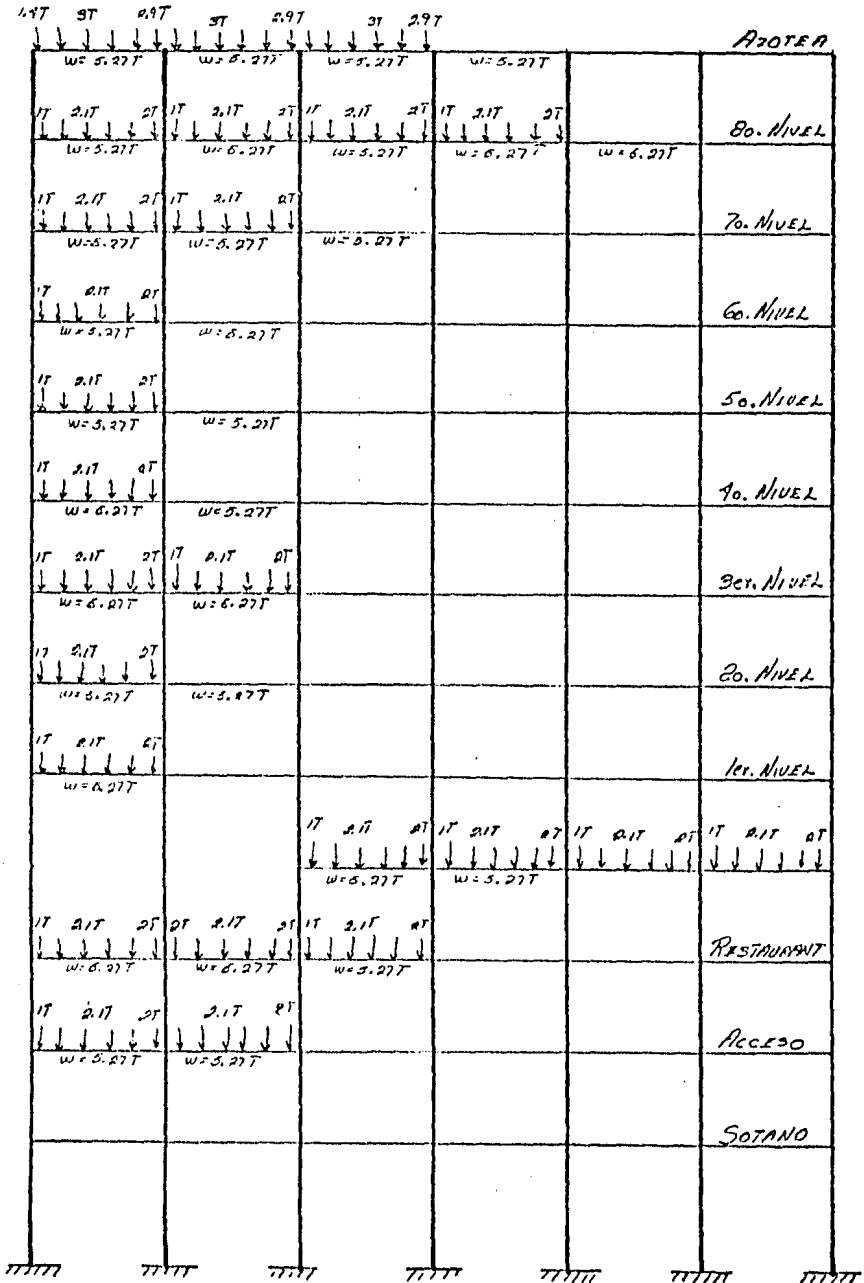 1.4T 3T 2.9T 3T 2.9T 3T 2.9T
AZOTEA
w=5.27T w=5.27T w=5.27T w=5.27T
1T 2.1T 2T 1T 2.1T 2T 1T 2.1T 2T 1T 2.1T 2T
8o. NIVEL
w=5.27T w=5.27T w=5.27T w=5.27T w=5.27T
1T 2.1T 2T 1T 2.1T 2T
7o. NIVEL
w=5.27T w=5.27T w=5.27T
1T 2.1T 2T
6o. NIVEL
w=5.27T w=5.27T
1T 2.1T 2T
5o. NIVEL
w=5.27T w=5.27T
1T 2.1T 2T
4o. NIVEL
w=5.27T w=5.27T
1T 2.1T 2T 1T 2.1T 2T
3er. NIVEL
w=5.27T w=5.27T
1T 2.1T 2T
2o. NIVEL
w=5.27T w=5.27T
1T 2.1T 2T
1er. NIVEL
w=5.27T
1T 2.1T 2T 1T 2.1T 2T 1T 2.1T 2T 1T 2.1T 2T
w=5.27T w=5.27T
1T 2.1T 2T 2T 2.1T 2T 1T 2.1T 2T
RESTAURANT
w=5.27T w=5.27T w=5.27T
1T 2.1T 2T 2.1T 2T
ACCESO
w=5.27T w=5.27T
SOTANO